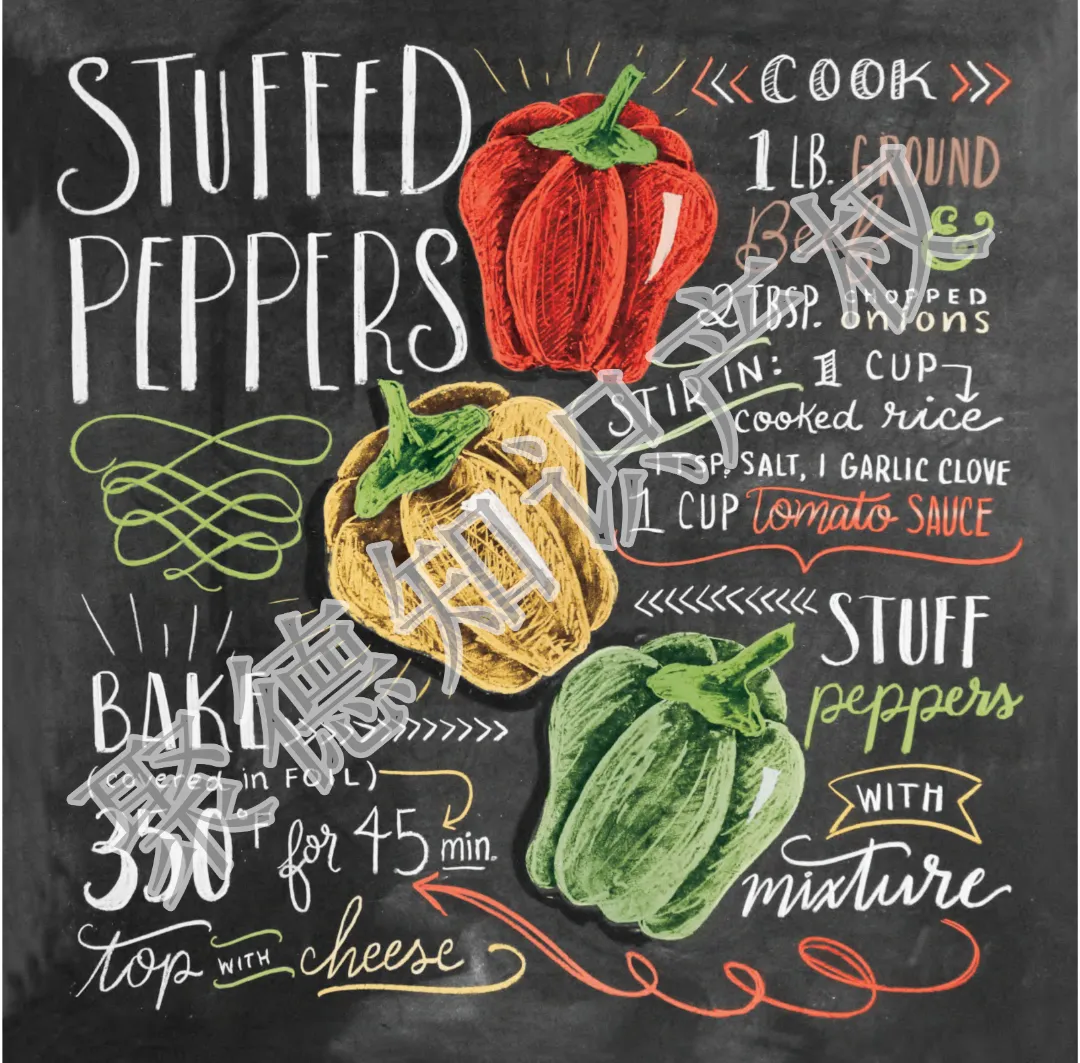 STUFFED
PEPPERS
COOK
1 LB. GROUND
Beef &
2 TBSP. CHOPPED
onions
STIR IN: 1 CUP
cooked rice
1 TSP. SALT, 1 GARLIC CLOVE
1 CUP tomato SAUCE
STUFF
peppers
WITH
mixture
BAKE
(covered in FOIL)
350°F for 45 min.
top WITH cheese
聚德知识产权